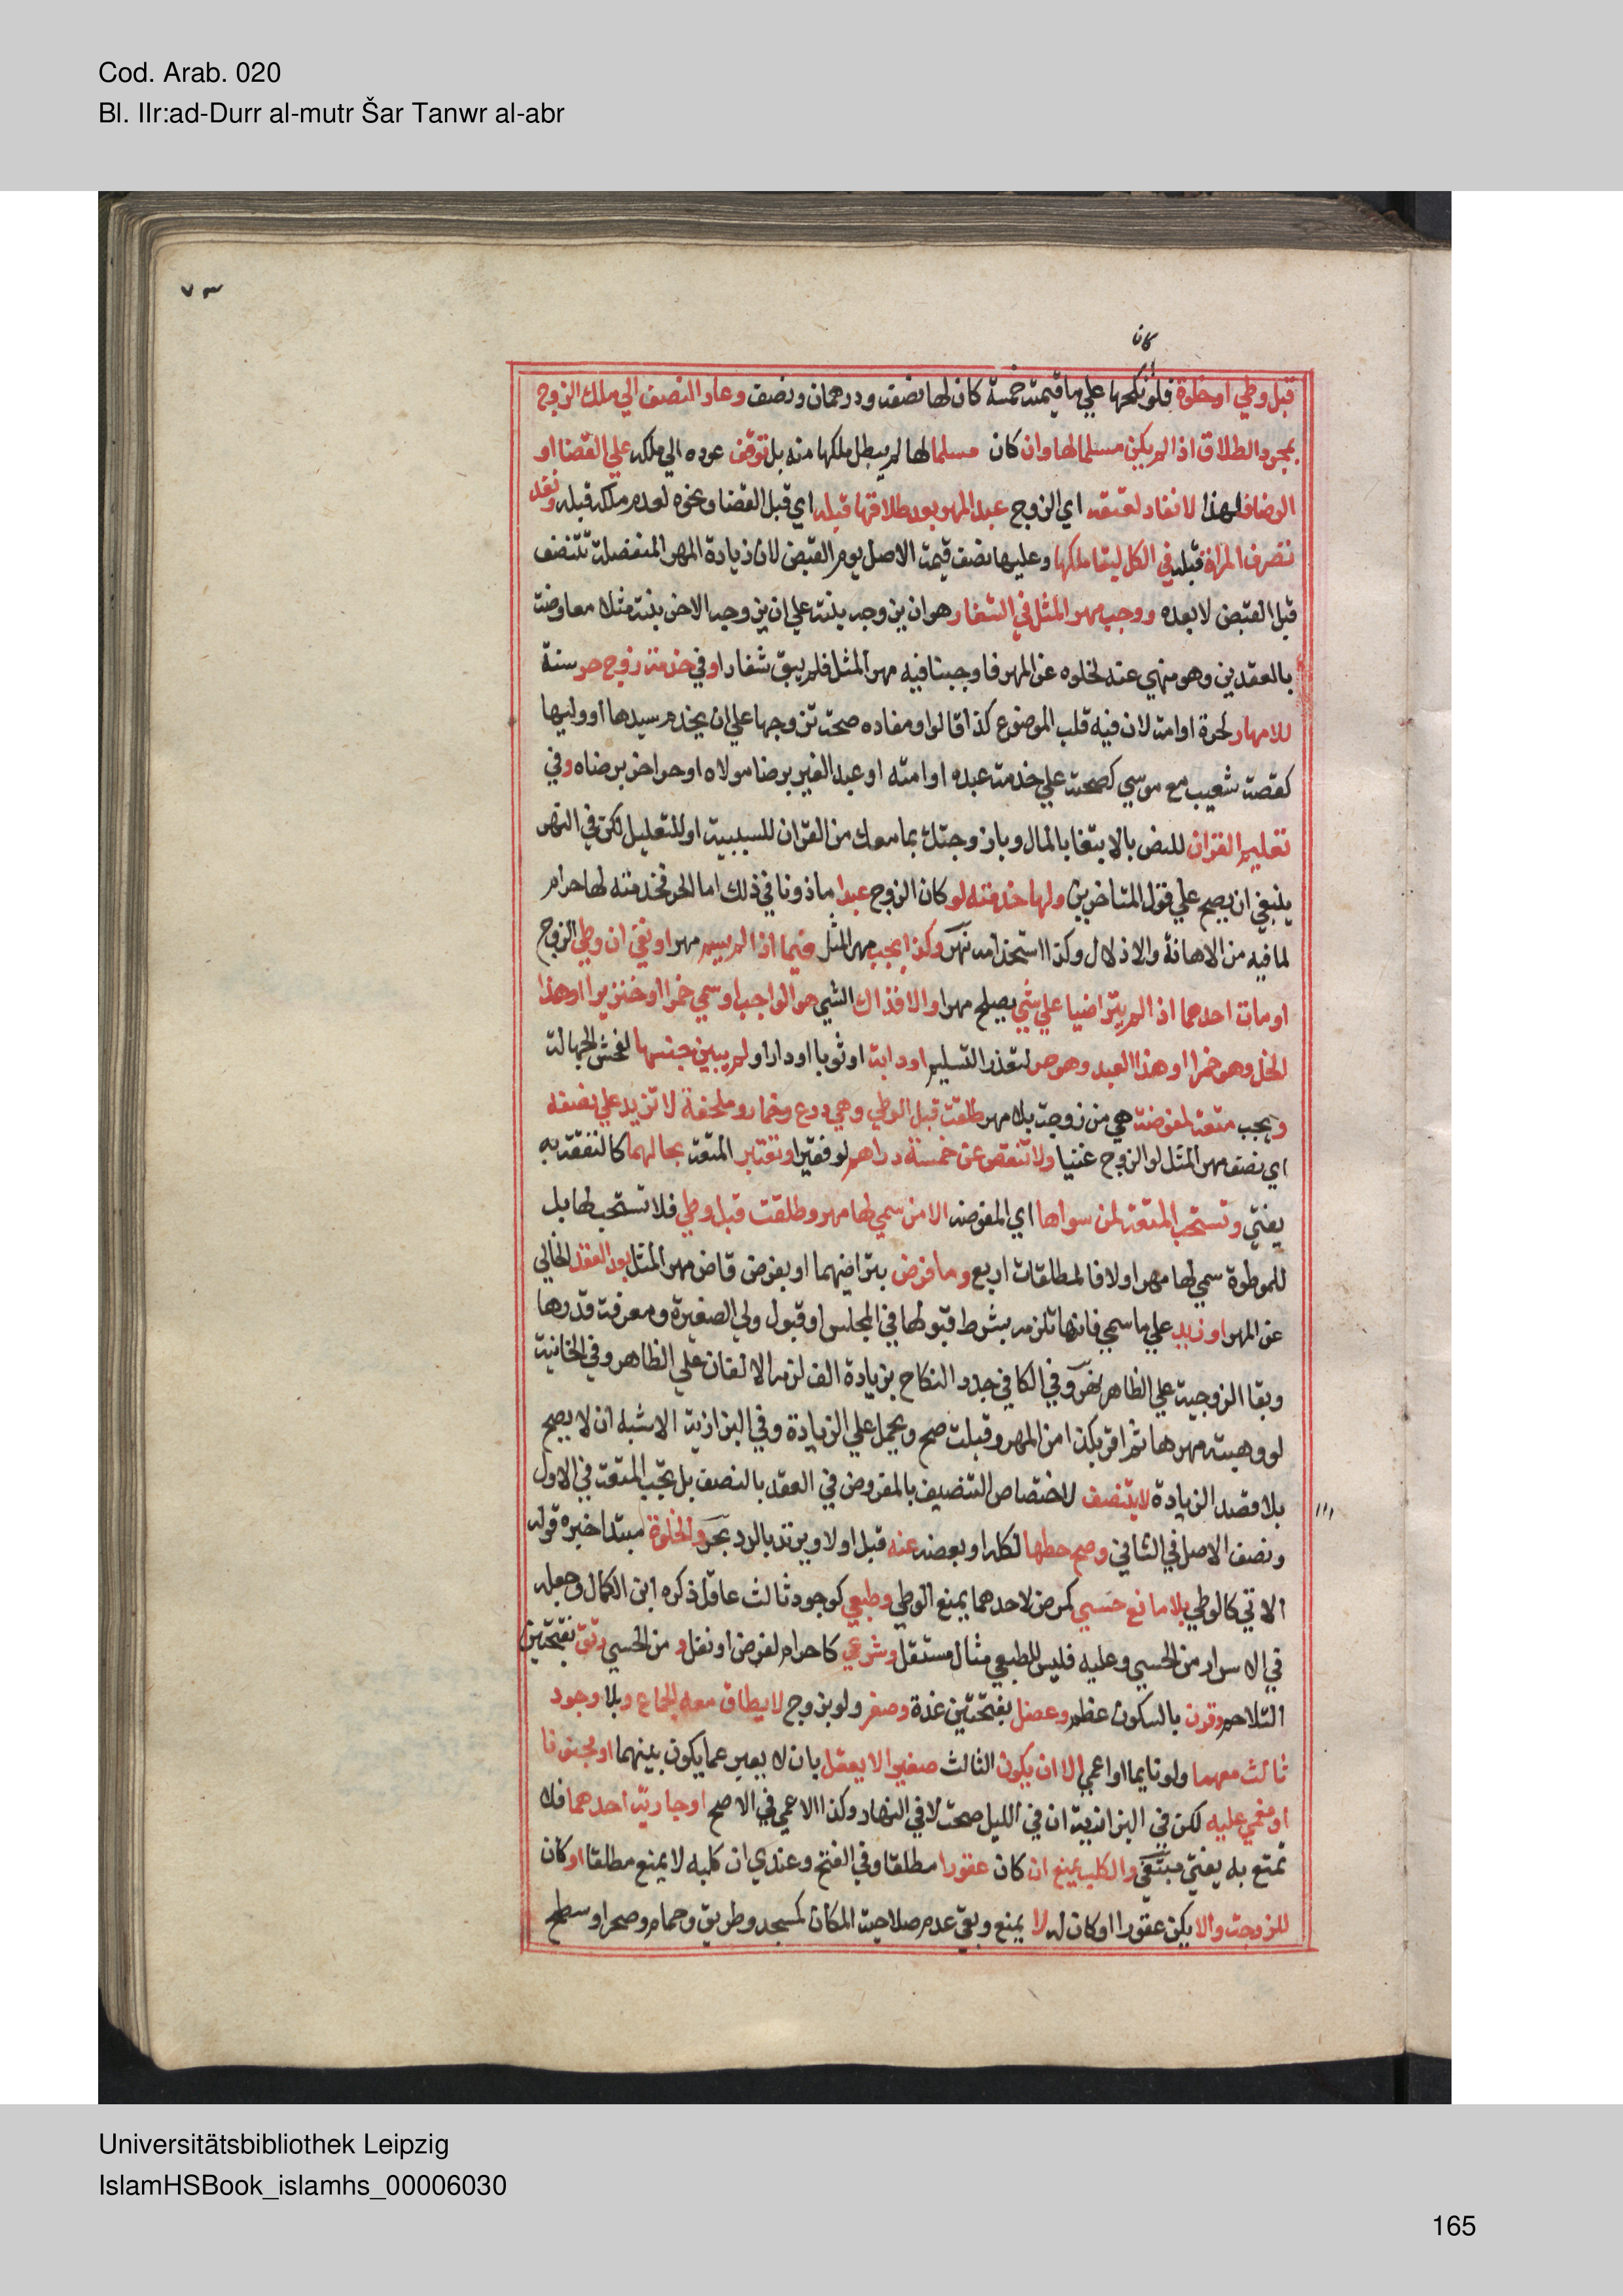 Cod. Arab. 020
Bl. IIr:ad-Durr al-mutr Šar Tanwr al-abr
٧٣
كان
قبل وطي او خلوة فلو نكحها علي ما قيمته خمسة كان لها نصفه ودرهمان ونصف وعاد النصف الي ملك الزوج
بمجرد الطلاق اذا لم يكن مسلما لها وان كان مسلما لها لم يبطل ملكها منه بل توقف عوده الي ملكه علي القضا او
الرضا فلهذا لا نفاد لعتقه اي الزوج عبد المهر بعد طلاقها قبله اي قبل القضا ونحوه لعدم ملكه قبله ونفد
تصرف المراة قبله في الكل لبقا ملكها وعليها نصف قيمة الاصل يوم القبض لان زيادة المهر المنفصلة تتنصف
قبل القبض لا بعده ووجب مهر المثل في الشغار هو ان يزوجه بنته علي ان يزوجه الاخر بنته مثلا معاوضة
بالعقدين وهو منهي عنه لخلوه عن المهر فاوجبنا فيه مهر المثل فلم يبق شغارا وفي خدمة زوج حر سنة
للامهار لحرة او امة لان فيه قلب الموضوع كذا قالوا ومفاده صحة تزوجها علي ان يخدم سيدها او وليها
كقصة شعيب مع موسي كصحته علي خدمة عبده او امته او عبد الغير برضا مولاه او حر اخر برضاه وفي
تعليم القران للنص بالابتغا بالمال وبا زوجتك بما معك من القران للسببية او للتعليل لكن في النهر
ينبغي ان يصح علي قول المتاخرين ولها خدمته لو كان الزوج عبدا ماذونا في ذلك اما الحر فخدمته لها حرام
لما فيه من الاهانة والاذلال وكذا استخدامه نهر وكذا يجب مهر المثل فيما اذا لم يسم مهرا او نفي ان وطي الزوج
او مات احدهما اذا لم يتراضيا علي شي يصلح مهرا والا فذاك الشي هو الواجب او سمي خمرا او خنزيرا او هذا
الخل وهو خمرا او هذا العبد وهو حر لتعذر التسليم او دابة او ثوبا او دارا ولم يبين جنسها لفحش الجهالة
وتجب متعة لمفوضة هي من زوجت بلا مهر طلقت قبل الوطي وهي درع وخمار وملحفة لا تزيد علي نصفه
اي نصف مهر المثل لو الزوج غنيا ولا تنقص عن خمسة دراهم لو فقيرا وتعتبر المتعة بحالهما كالنفقة به
يفتي وتستحب المتعة لمن سواها اي المفوضة الا من سمي لها مهر وطلقت قبل وطي فلا تستحب لها بل
للموطوة سمي لها مهرا ولا فالمطلقات اربع وما فرض بتراضيهما او بفرض قاض مهر المثل بعد العقد الخالي
عن المهر او زيد علي ما سمي فانها تلزمه بشرط قبولها في المجلس او قبول ولي الصغيرة ومعرفة قدرها
وبقا الزوجية علي الظاهر نهر وفي الكافي جدد النكاح بزيادة الف لزمه الالفان علي الظاهر وفي الخانية
لو وهبته مهرها ثم اقر بكذا من المهر وقبلت صح ويحمل علي الزيادة وفي البزازية الاشبه ان لا يصح
بلا قصد الزيادة لا يتنصف لاختصاص التنصيف بالمفروض في العقد بالنصف بل تجب المتعة في الاول
ونصف الاصل في الثاني وصح حطها لكله او بعضه عنه قبل او لا ويرتد بالرد بحر والخلوة مبتدا خبره قوله
الاتي كالوطي بلا مانع حسي كمرض لاحدهما يمنع الوطي وطبعي كوجود ثالث عاقل ذكره ابن الكمال وجعله
في الاسرار من الحسي وعليه فليس للطبعي مثال مستقل وشرعي كاحرام لفرض او نفل و من الحسي رتق بفتحتين
التلاحم وقرن بالسكون عظم وعضل بفتحتين غدة وصغر ولو بزوج لا يطاق معه الجماع وبلا وجود
ثالث معهما ولو نايما او اعمي الا ان يكون الثالث صغيرا لا يعقل بان لا يعبر عما يكون بينهما او مجنونا
او مغمي عليه لكن في البزازية ان في الليل صحت لا في النهار وكذا الاعمي في الاصح او جارية احدهما فلا
تمتع به يفتي مبتغي والكلب يمنع ان كان عقورا مطلقا وفي الفتح وعندي ان كلبه لا يمنع مطلقا او كان
للزوجة والا يكن عقورا او كان له لا يمنع وبقي عدم صلاحية المكان كمسجد وطريق وحمام وصحرا وسطح
Universitätsbibliothek Leipzig
IslamHSBook_islamhs_00006030
165